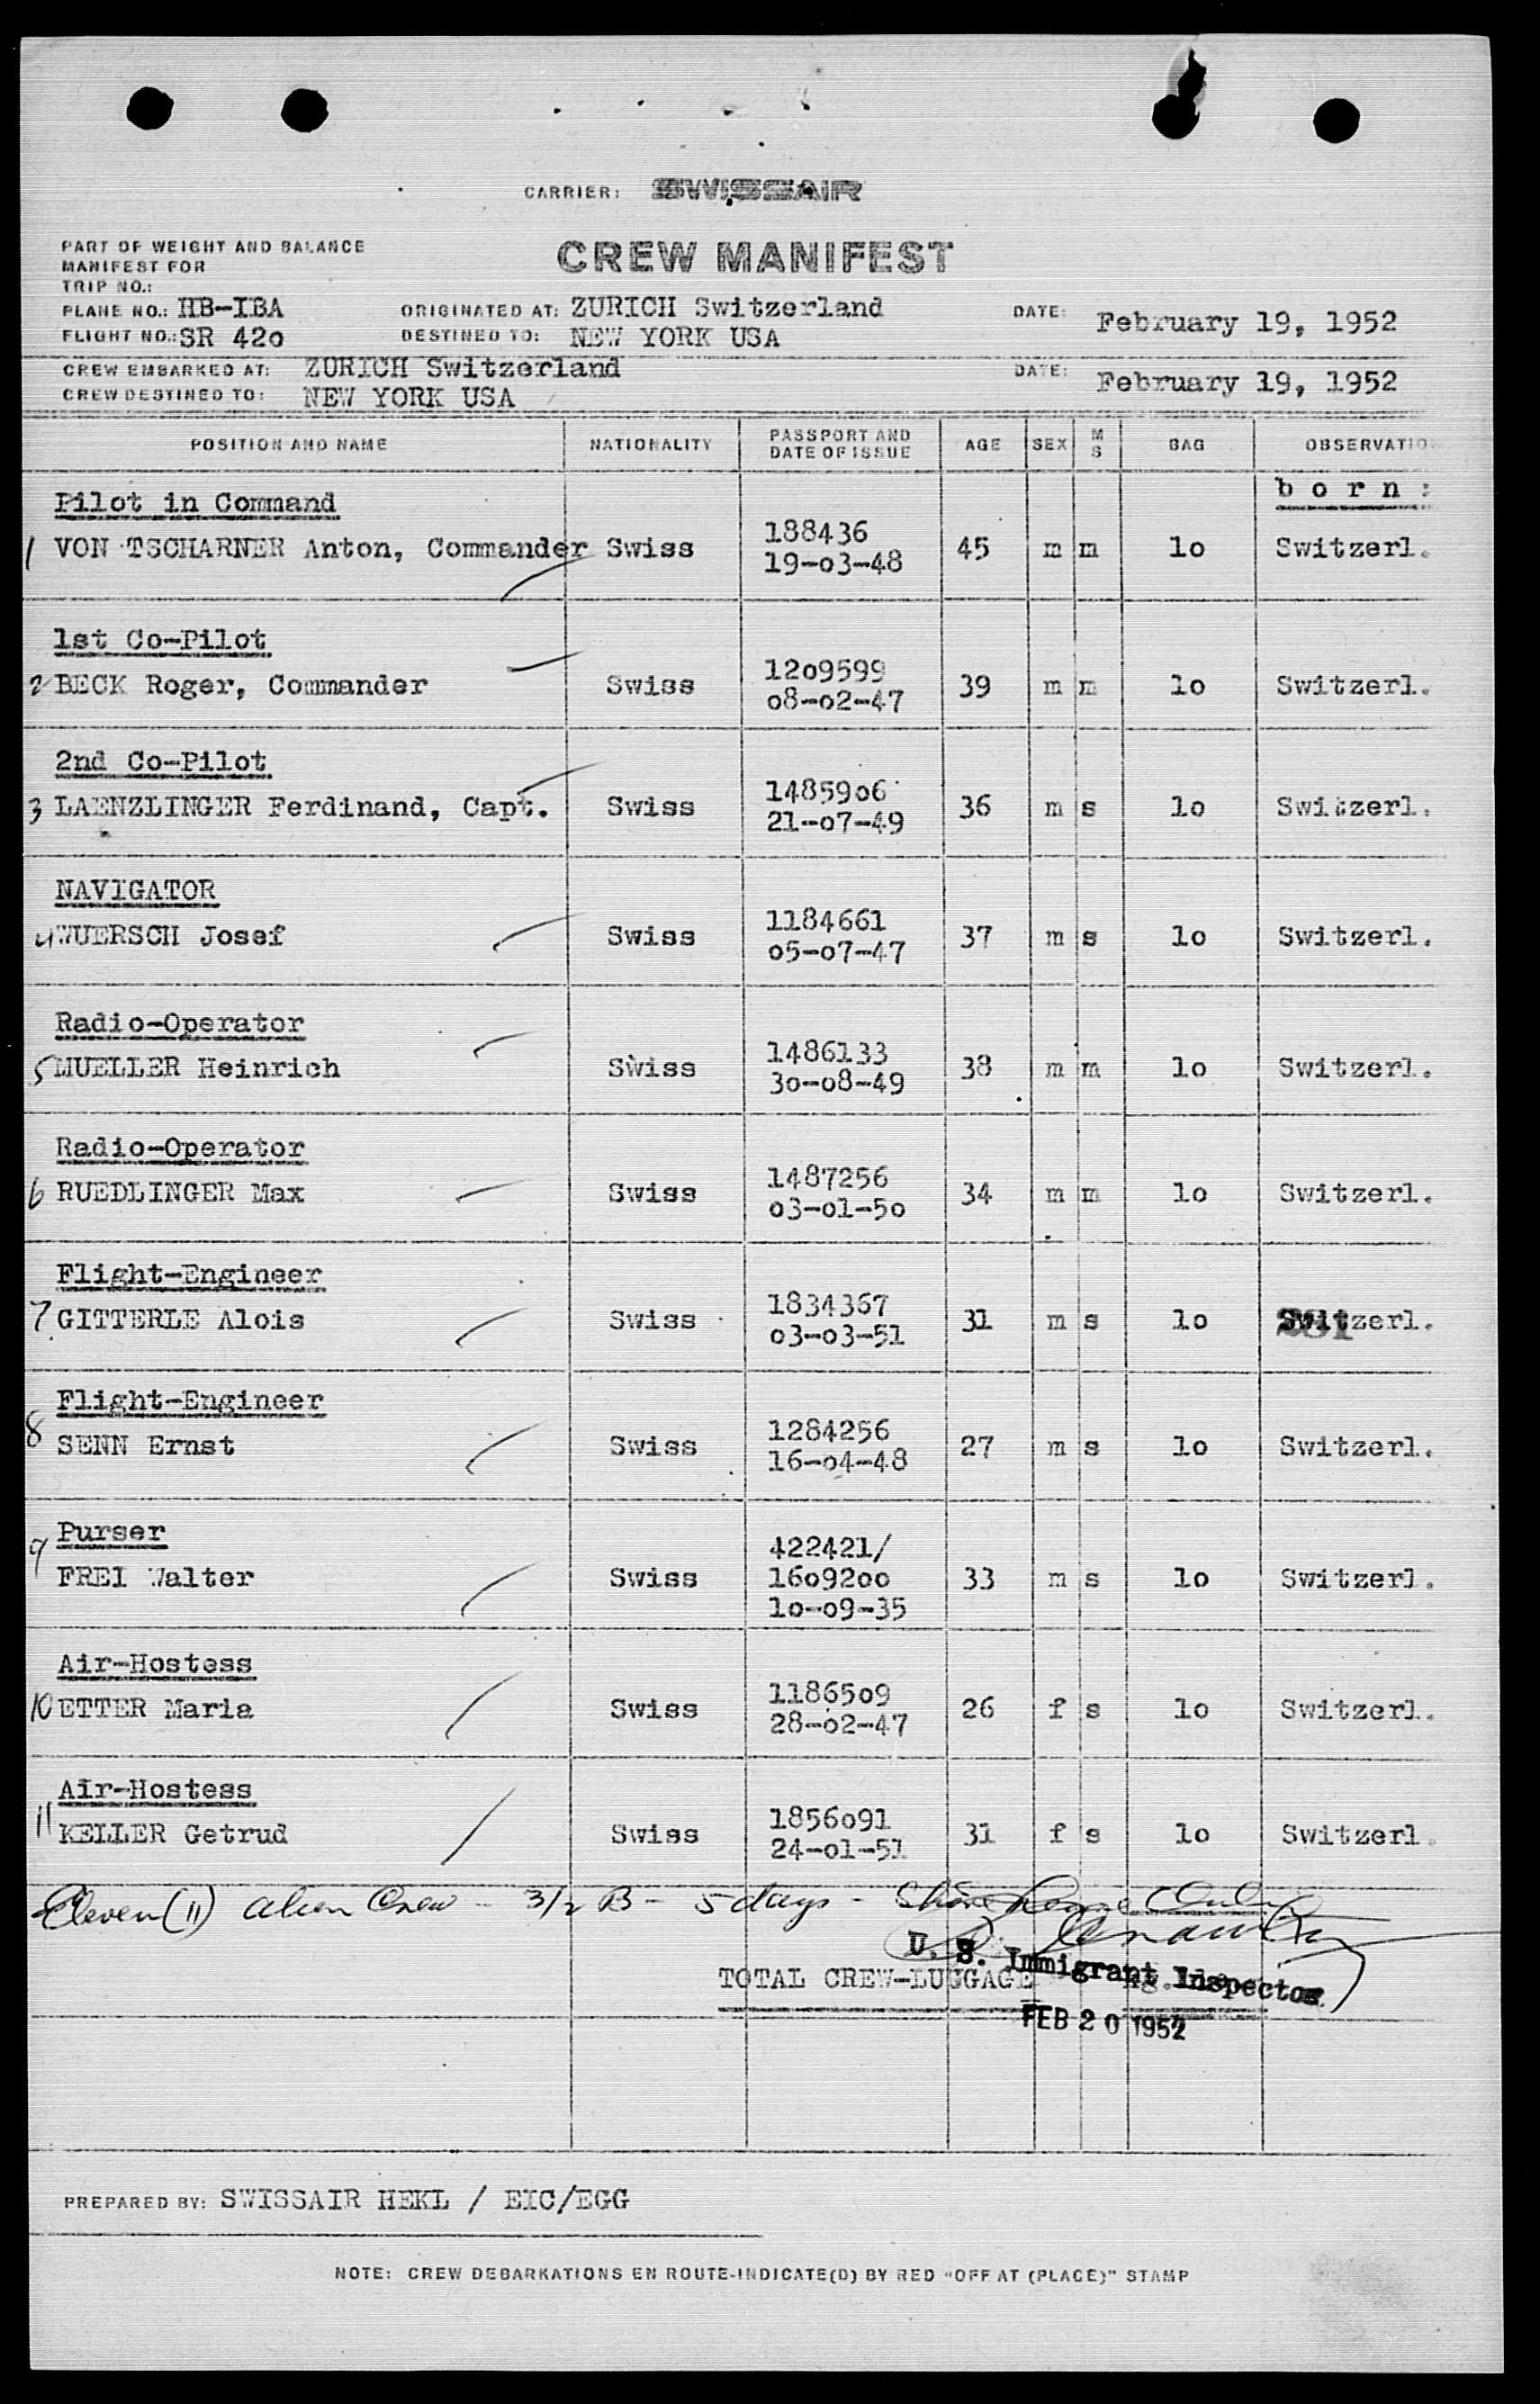 CARRIER: SWISSAIR
PART OF WEIGHT AND BALANCE
MANIFEST FOR
CREW MANIFEST
TRIP NO.:
PLANE NO.: HB-IBA ORIGINATED AT: ZURICH Switzerland DATE: February 19, 1952
FLIGHT NO.: SR 42o DESTINED TO: NEW YORK USA
CREW EMBARKED AT: ZURICH Switzerland DATE: February 19, 1952
CREW DESTINED TO: NEW YORK USA
POSITION AND NAME NATIONALITY PASSPORT AND DATE OF ISSUE AGE SEX M S BAG OBSERVATIO
b o r n :
Pilot in Command
188436
1 VON TSCHARNER Anton, Commander Swiss 45 m m lo Switzerl.
19-o3-48
1st Co-Pilot
12o9599
2 BECK Roger, Commander Swiss 39 m m lo Switzerl.
o8-o2-47
2nd Co-Pilot
14859o6
3 LAENZLINGER Ferdinand, Capt. Swiss 36 m s lo Switzerl.
21-o7-49
NAVIGATOR
1184661
4 WUERSCH Josef Swiss 37 m s lo Switzerl.
o5-o7-47
Radio-Operator
1486133
5 MUELLER Heinrich Swiss 38 m m lo Switzerl.
3o-o8-49
Radio-Operator
1487256
6 RUEDLINGER Max Swiss 34 m m lo Switzerl.
o3-o1-5o
Flight-Engineer
1834367
7 GITTERLE Alois Swiss 31 m s lo Switzerl.
o3-o3-51
281
Flight-Engineer
1284256
8 SENN Ernst Swiss 27 m s lo Switzerl.
16-o4-48
Purser
422421/
9 FREI Walter Swiss 16o92oo 33 m s lo Switzerl.
lo-o9-35
Air-Hostess
11865o9
10 ETTER Maria Swiss 26 f s lo Switzerl.
28-o2-47
Air-Hostess
1856o91
11 KELLER Getrud Swiss 31 f s lo Switzerl.
24-o1-51
Eleven (11) alien Crew - 3/2 B - 5 days - Shore
U. S. Immigrant Inspector
TOTAL CREW-LUGGAGE
FEB 20 1952
PREPARED BY: SWISSAIR HEKL / EIC/EGG
NOTE: CREW DEBARKATIONS EN ROUTE-INDICATE(D) BY RED "OFF AT (PLACE)" STAMP